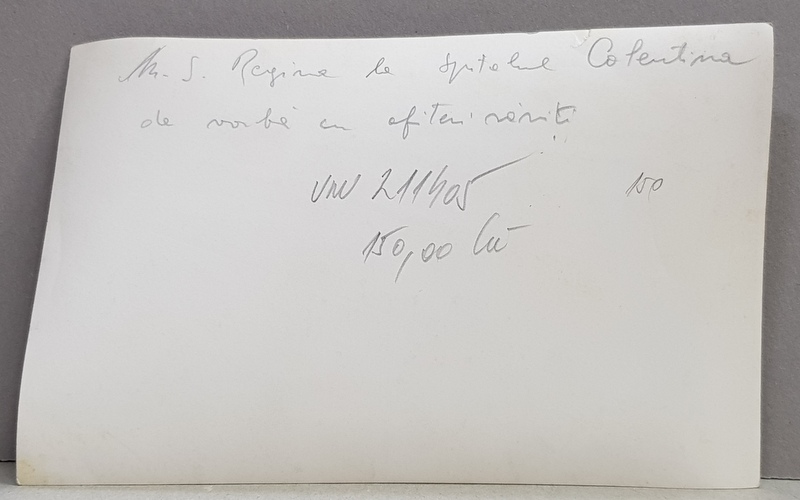 M. S. Regina la Spitalul Colentina
de vorbă cu ofiteri răniti
211405
150
150,00